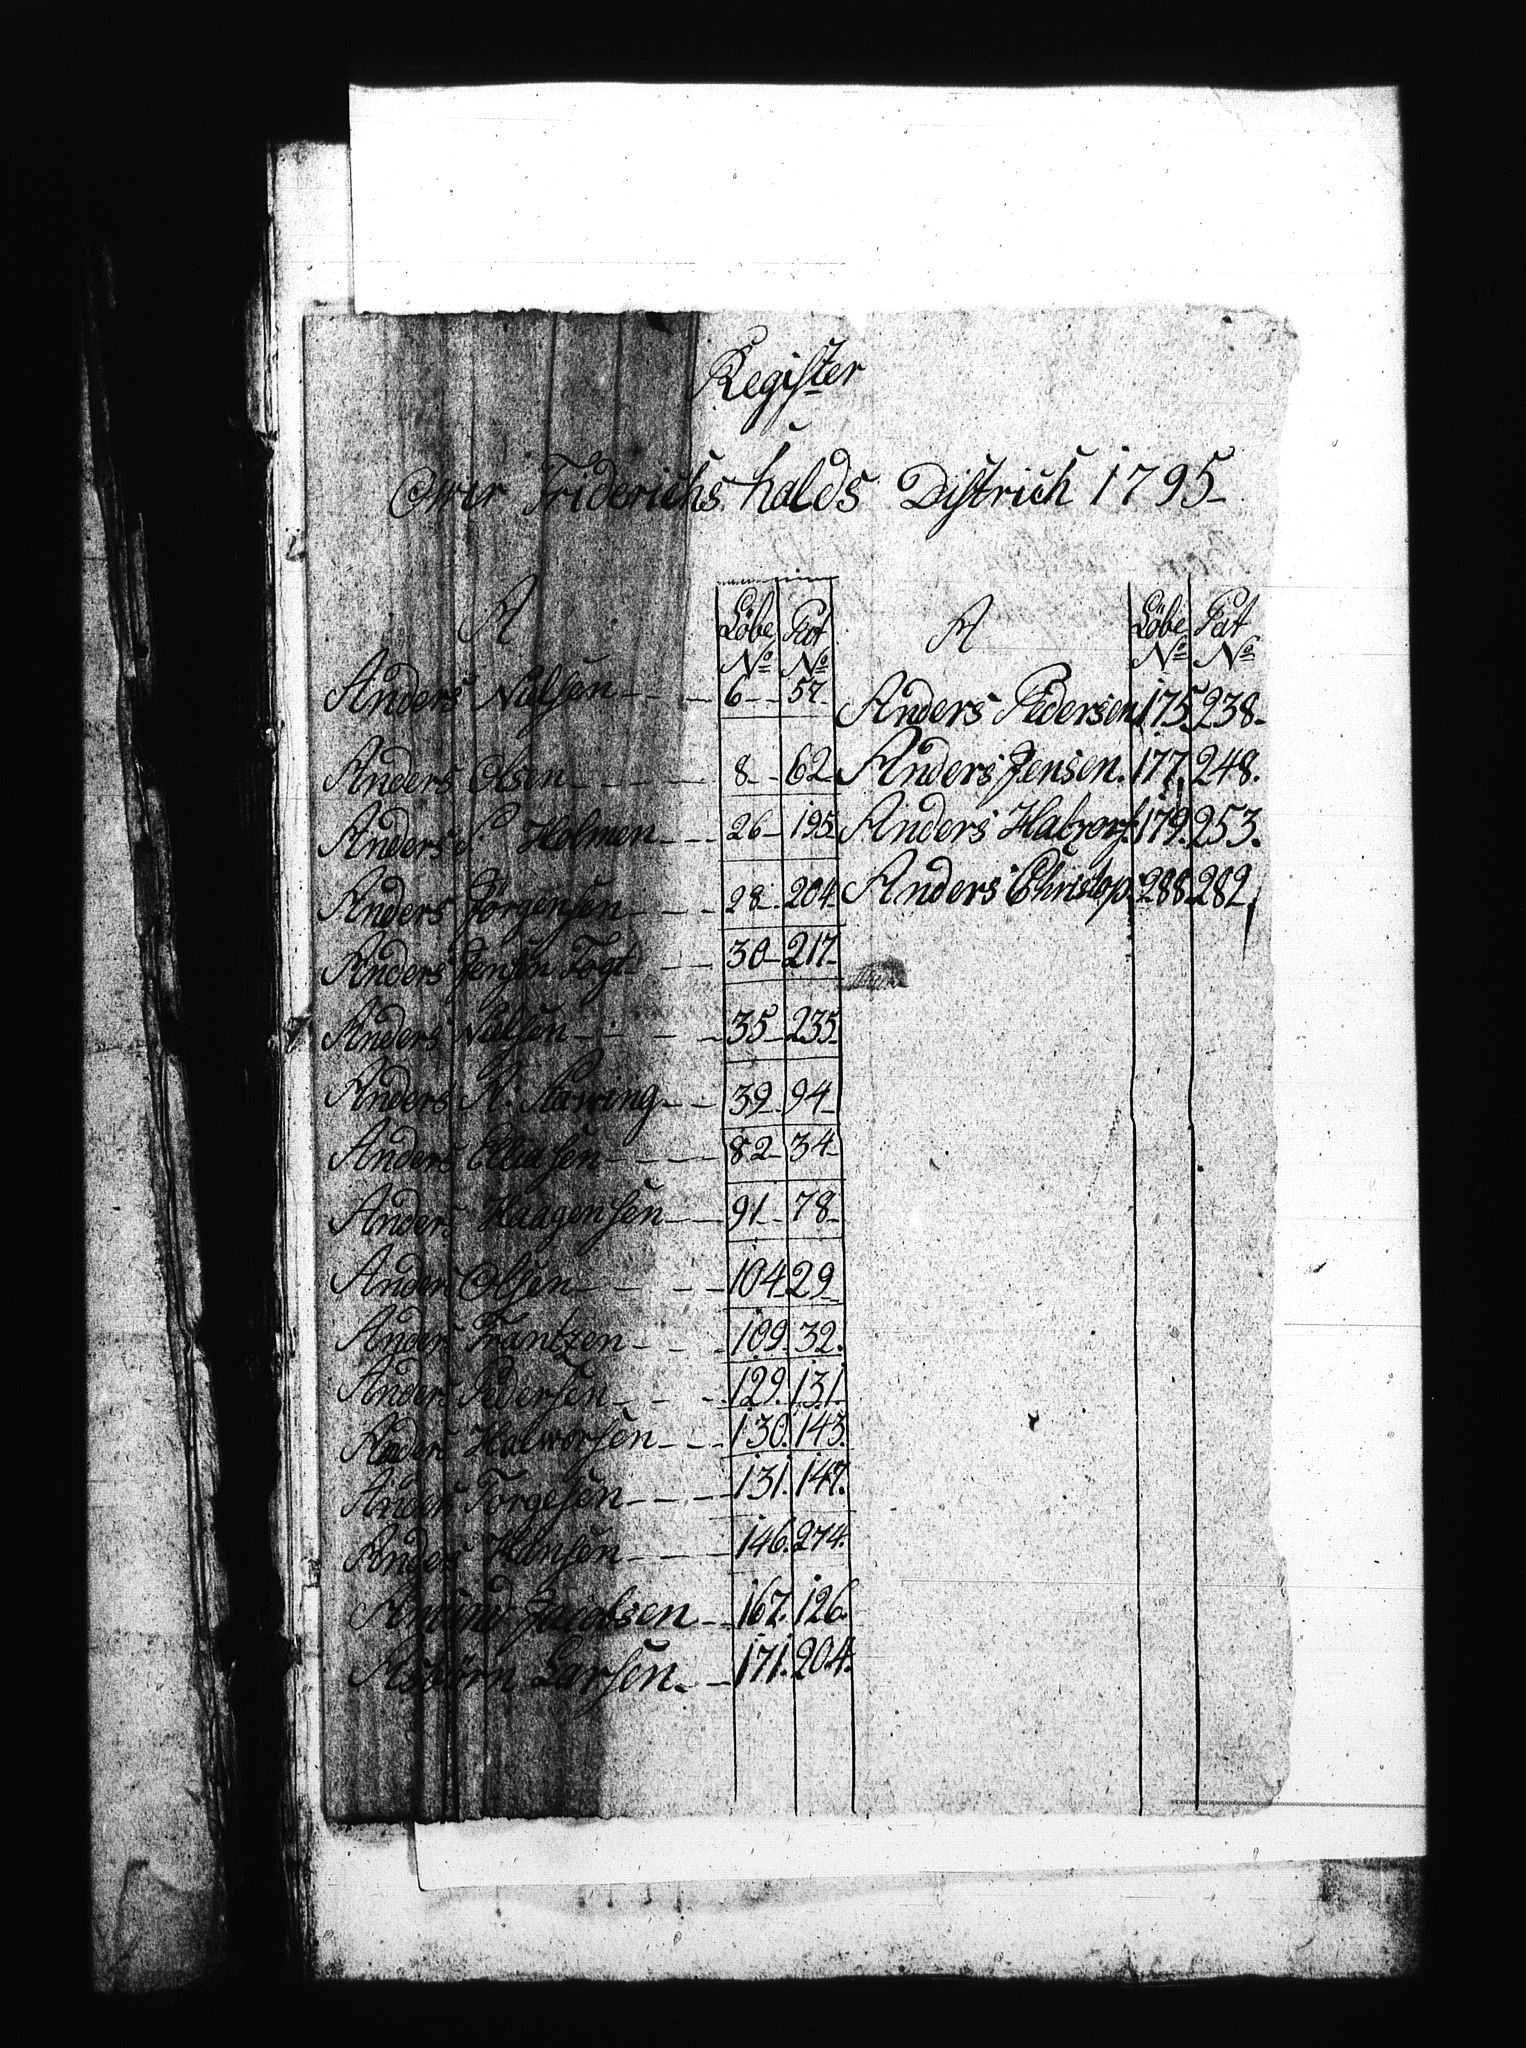 Register
Over Friderichshalds Districh 1795
A Löbe No Pat No
Anders Nielsen 6 57
Anders Olsen 8 62
Anders P Holmen 26 195
Anders Jörgensen 28 204
Anders Jensen Fogt 30 217
Anders Nielsen 35 235
Anders R. 39 94
Anders Elliasen 82 34
Anders Haagensen 91 78
Anders Olsen 104 29
Anders Frantzen 109. 32.
Anders Pedersen 129. 131.
Anders Halworsen 130. 143.
Anders Torgesen 131. 147.
Anders Hansen 146. 274.
Amund Jacobsen 167. 126.
Asbiörn Larsen 171. 204.
A Löbe No Pat No
Anders Pedersen 175. 238
Anders Jensen. 177. 248.
Anders 179. 253.
Anders Christop. 288 282